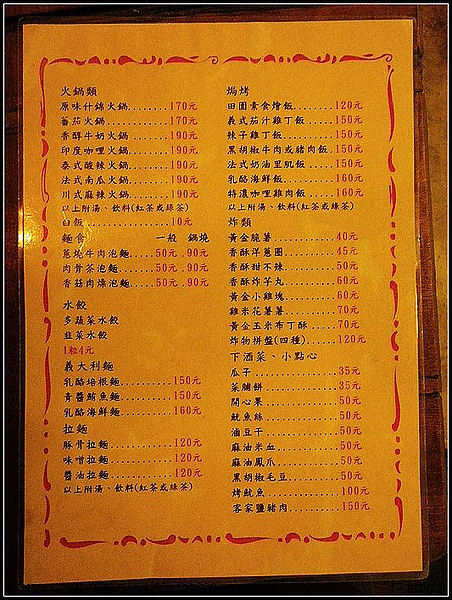 火鍋類
原味什錦火鍋........170元
番茄火鍋............170元
香醇牛奶火鍋........190元
印度咖哩火鍋........190元
泰式酸辣火鍋........190元
法式南瓜火鍋........190元
川式麻辣火鍋........190元
以上附湯、飲料(紅茶或綠茶)
白飯................10元
麵食 一般 鍋燒
蔥燒牛肉泡麵.....50元.90元
肉骨茶泡麵.......50元.90元
香菇肉燥泡麵.....50元.90元
水餃
多蔬菜水餃
韭菜水餃
1粒4元
義大利麵
乳酪培根麵.........150元
青醬鮪魚麵.........150元
乳酪海鮮麵.........160元
拉麵
豚骨拉麵...........120元
味噌拉麵...........120元
醬油拉麵...........120元
以上附湯、飲料(紅茶或綠茶)
焗烤
田園素食燴飯.......120元
義式茄汁雞丁飯.....150元
辣子雞丁飯.........150元
黑胡椒牛肉或豬肉飯.150元
法式奶油里肌飯.....150元
乳酪海鮮飯.........160元
特濃咖哩雞肉飯.....160元
以上附湯、飲料(紅茶或綠茶)
炸類
黃金脆薯............40元
香酥洋蔥圈..........45元
香酥甜不辣..........50元
香酥炸芋丸..........60元
黃金小雞塊..........60元
雞米花薯薯..........70元
黃金玉米布丁酥......70元
炸物拼盤(四種)......120元
下酒菜、小點心
瓜子................35元
菜脯餅..............35元
開心果..............50元
魷魚絲..............50元
滷豆干..............50元
麻油米血............50元
麻油鳳爪............50元
黑胡椒毛豆..........50元
烤魷魚.............100元
客家鹽豬肉.........150元